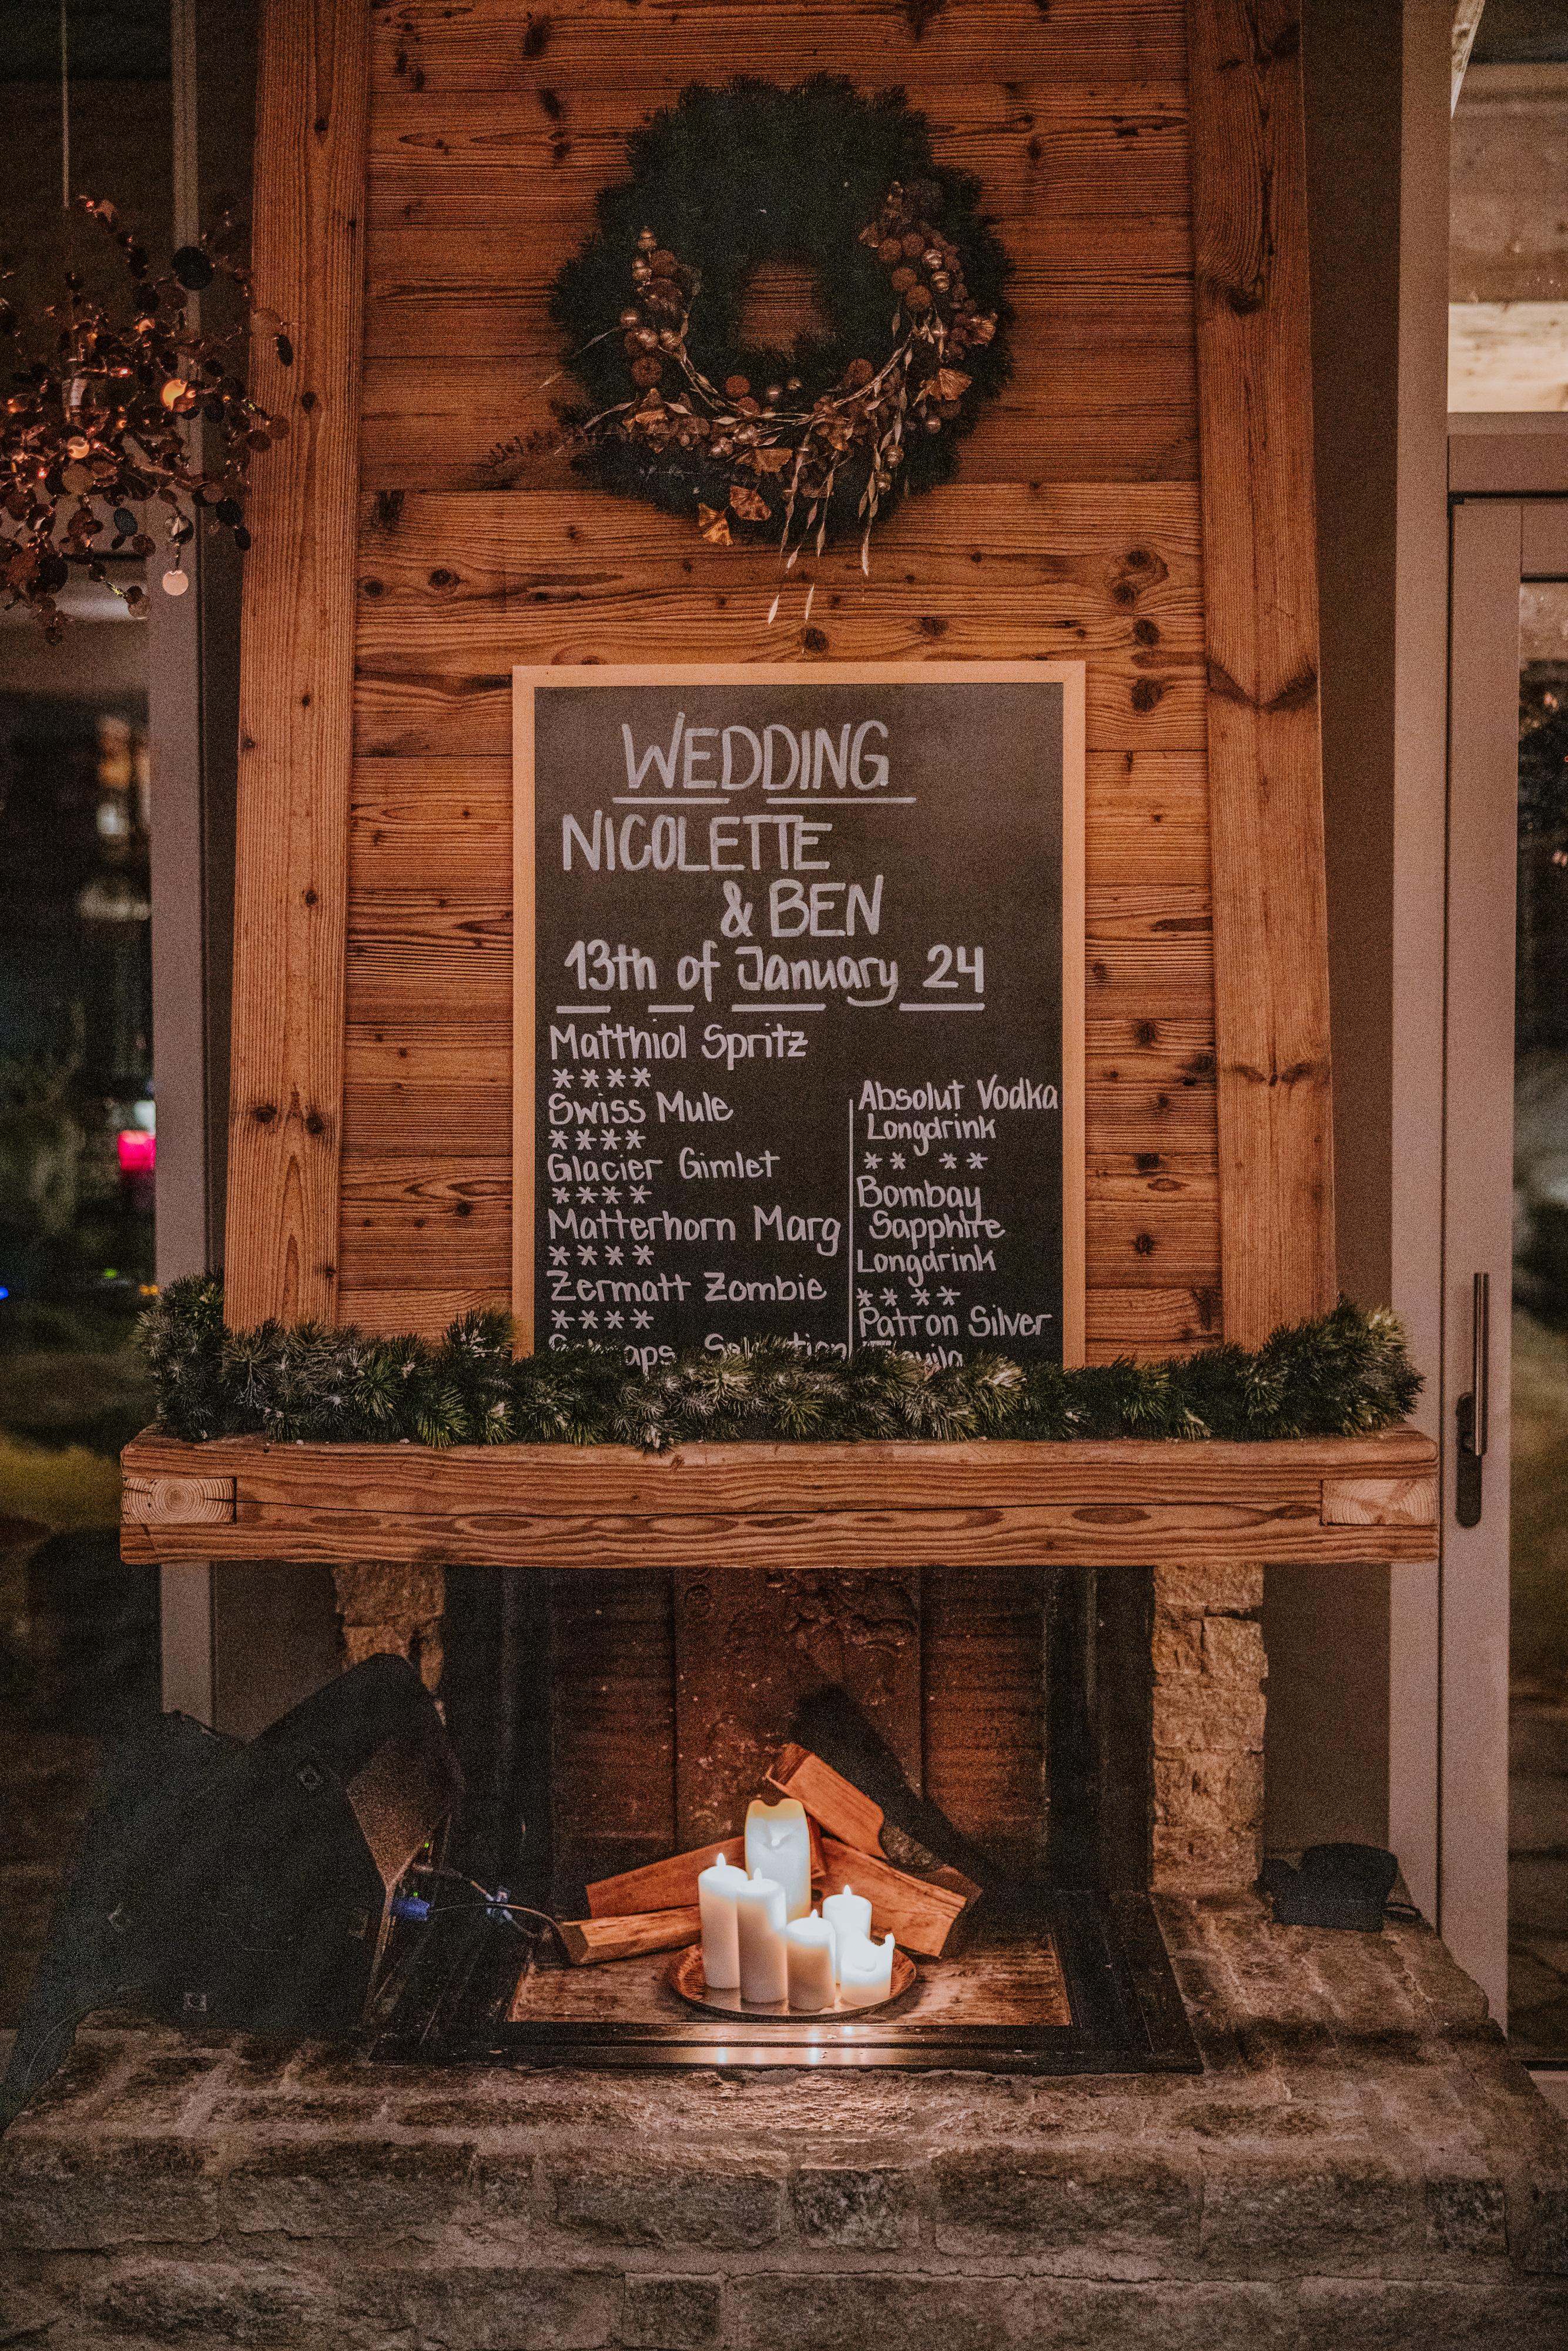 WEDDING
NICOLETTE
& BEN
13th of January 24
Matthiol Spritz
****
Swiss Mule
****
Glacier Gimlet
****
Matterhorn Marg
****
Zermatt Zombie
****
Absolut Vodka
Longdrink
** **
Bombay
Sapphire
Longdrink
** **
Patron Silver